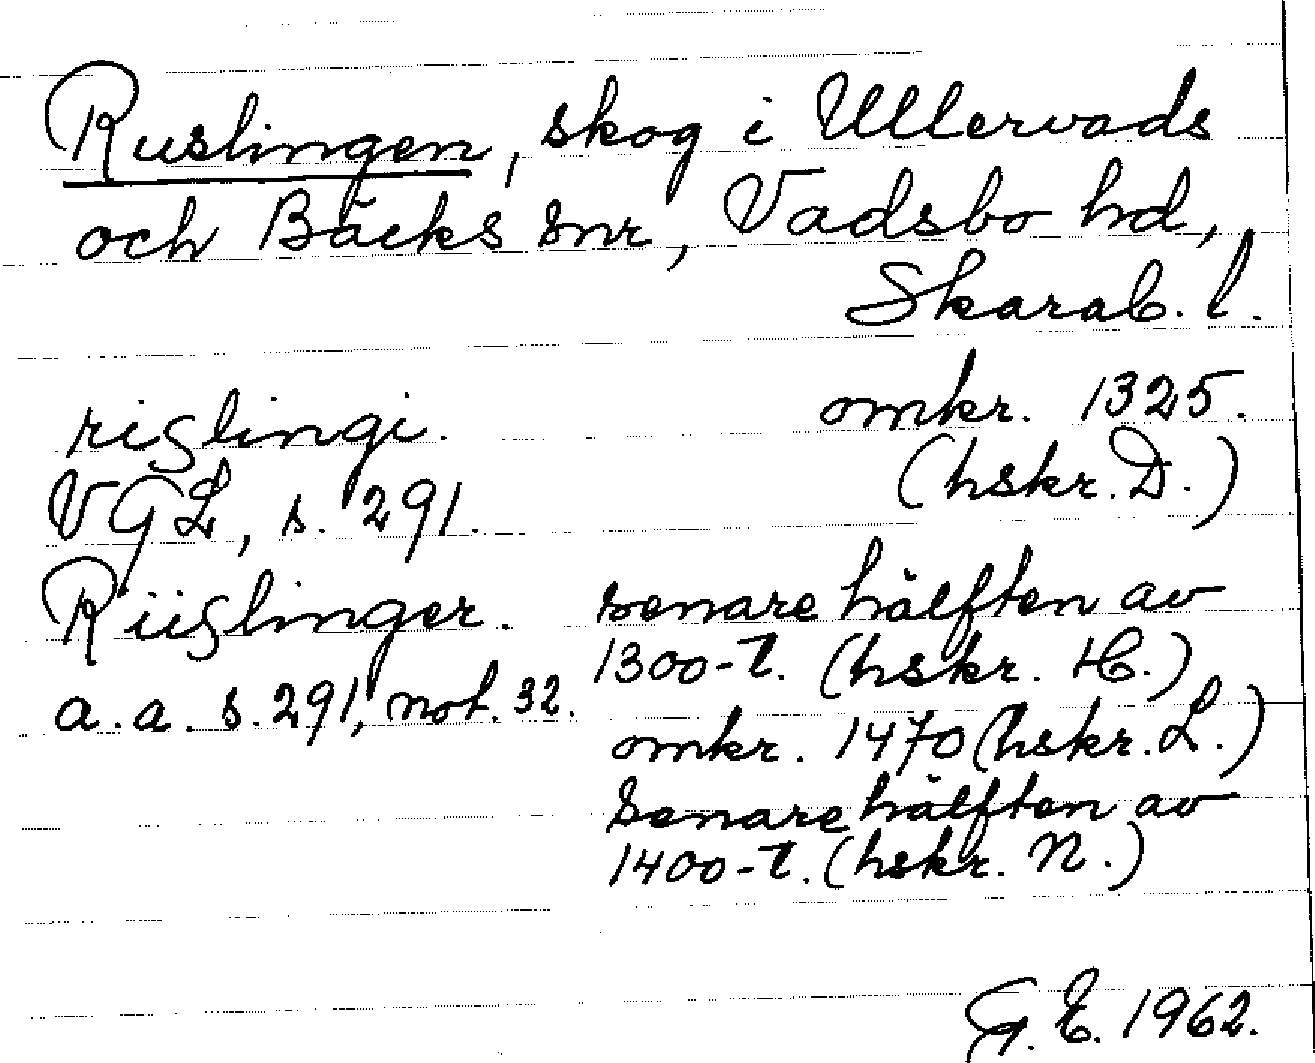 Ruslingen, skog i Ullervads
och Bäcks snr, Vadsbo hd,
Skarab. l.
rislingi. omkr. 1325.
VGL, s. 291. (hskr. D.)
Riislinger. senare hälften av
1300-t. (hskr. H.)
a.a. s. 291, not. 32.
omkr. 1470 (hskr. L.)
Senare hälften av
1400-t. (hskr. N.)
G. E. 1962.